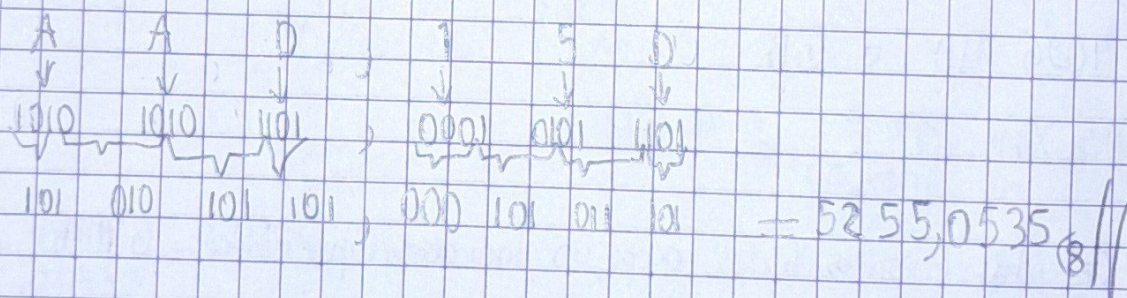 A A D , 1 5 D
1010 1010 1101 , 0001 0101 1101
101 010 101 101 , 000 101 011 101 = 5255,0535 (8)//